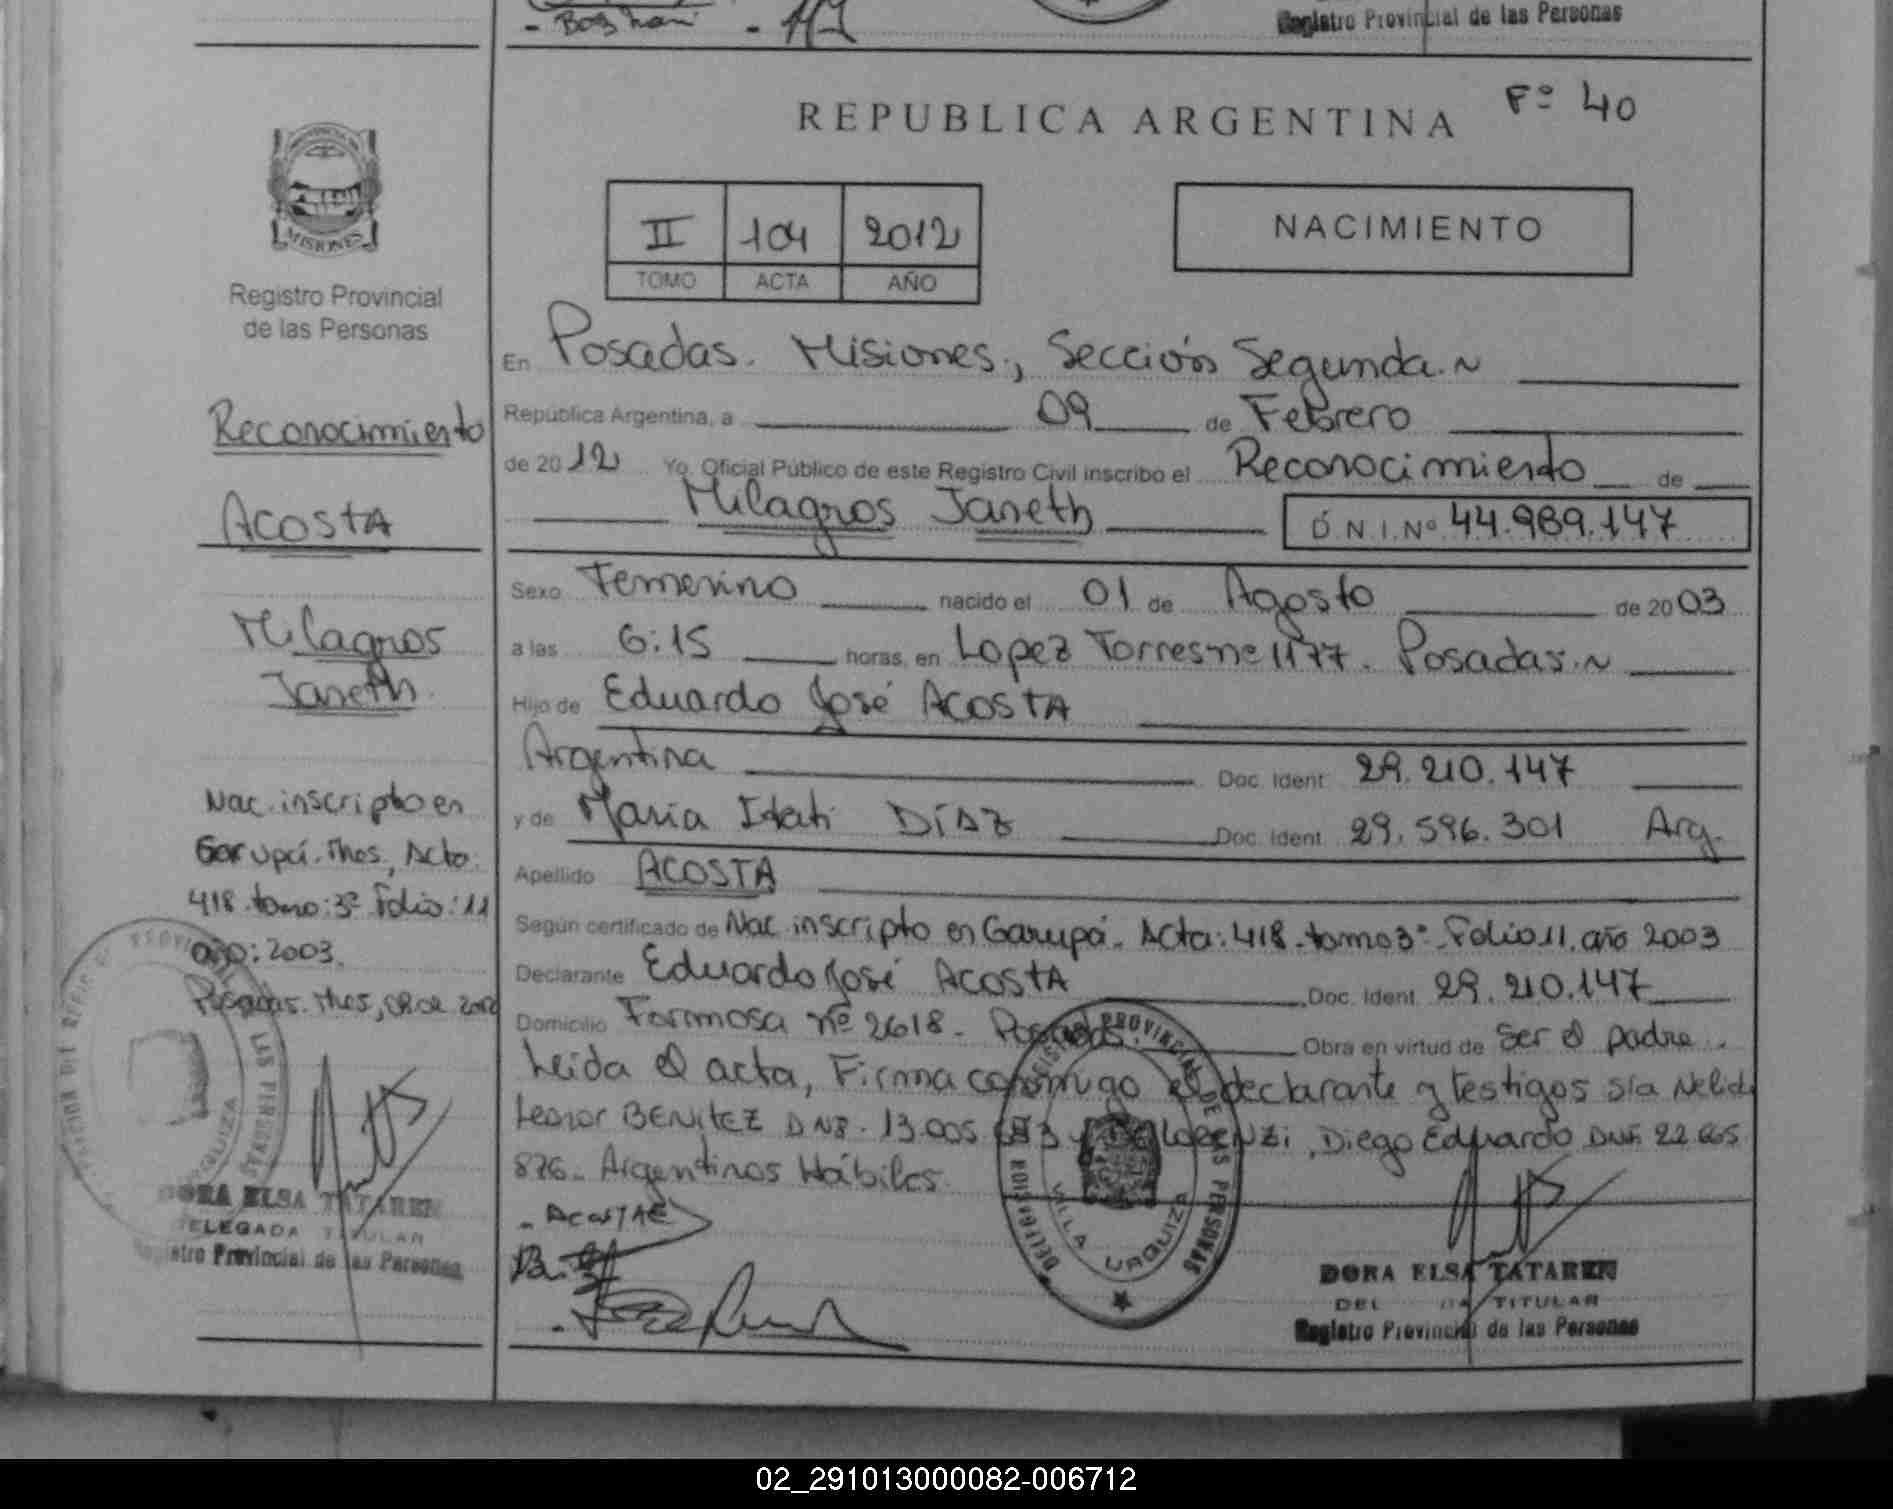 - Boghani -
Registro Provincial de las Personas
REPUBLICA ARGENTINA Fº 40
PROVINCIA DE
MISIONES
Registro Provincial
de las Personas
Reconocimiento
ACOSTA
Milagros
Janeth.
Nac. inscripto en
Garupá. Mnes, Acta:
418. tomo: 3º Folio: 11
año: 2003.
Posadas. Mnes,
DORA ELSA TATAREN
DELEGADA TITULAR
Registro Provincial de las Personas
II 104 2012
TOMO ACTA AÑO
NACIMIENTO
En Posadas. Misiones, Sección Segunda.~
República Argentina, a 09 de Febrero
de 2012 Yo, Oficial Público de este Registro Civil inscribo el Reconocimiento de
Milagros Janeth D.N.I.Nº 44.989.147
Sexo Femenino nacido el 01 de Agosto de 2003
a las 6:15 horas, en Lopez Torres nº 1177. Posadas.~
Hijo de Eduardo José ACOSTA
Argentina Doc. Ident. 29.210.147
y de María Itatí DÍAZ Doc. Ident. 29.596.301 Arg.
Apellido ACOSTA
Según certificado de Nac. inscripto en Garupá. Acta: 418. tomo 3º. Folio 11. año 2003
Declarante Eduardo José ACOSTA Doc. Ident. 29.210.147
Domicilio Formosa nº 2618. Posadas. Obra en virtud de Ser el padre.
Leida el acta, Firma conmigo el declarante y testigos sra Nelida
Leonor BENITEZ DNI. 13.005 y LORENZI, Diego Eduardo DNI. 22.665.
876. Argentinos Hábiles.
- Acosta E
REGISTRO PROVINCIAL DE LAS PERSONAS
DELEGACION
VILLA URQUIZA
DORA ELSA TATAREN
DEL DA TITULAR
Registro Provincial de las Personas
02_291013000082-006712